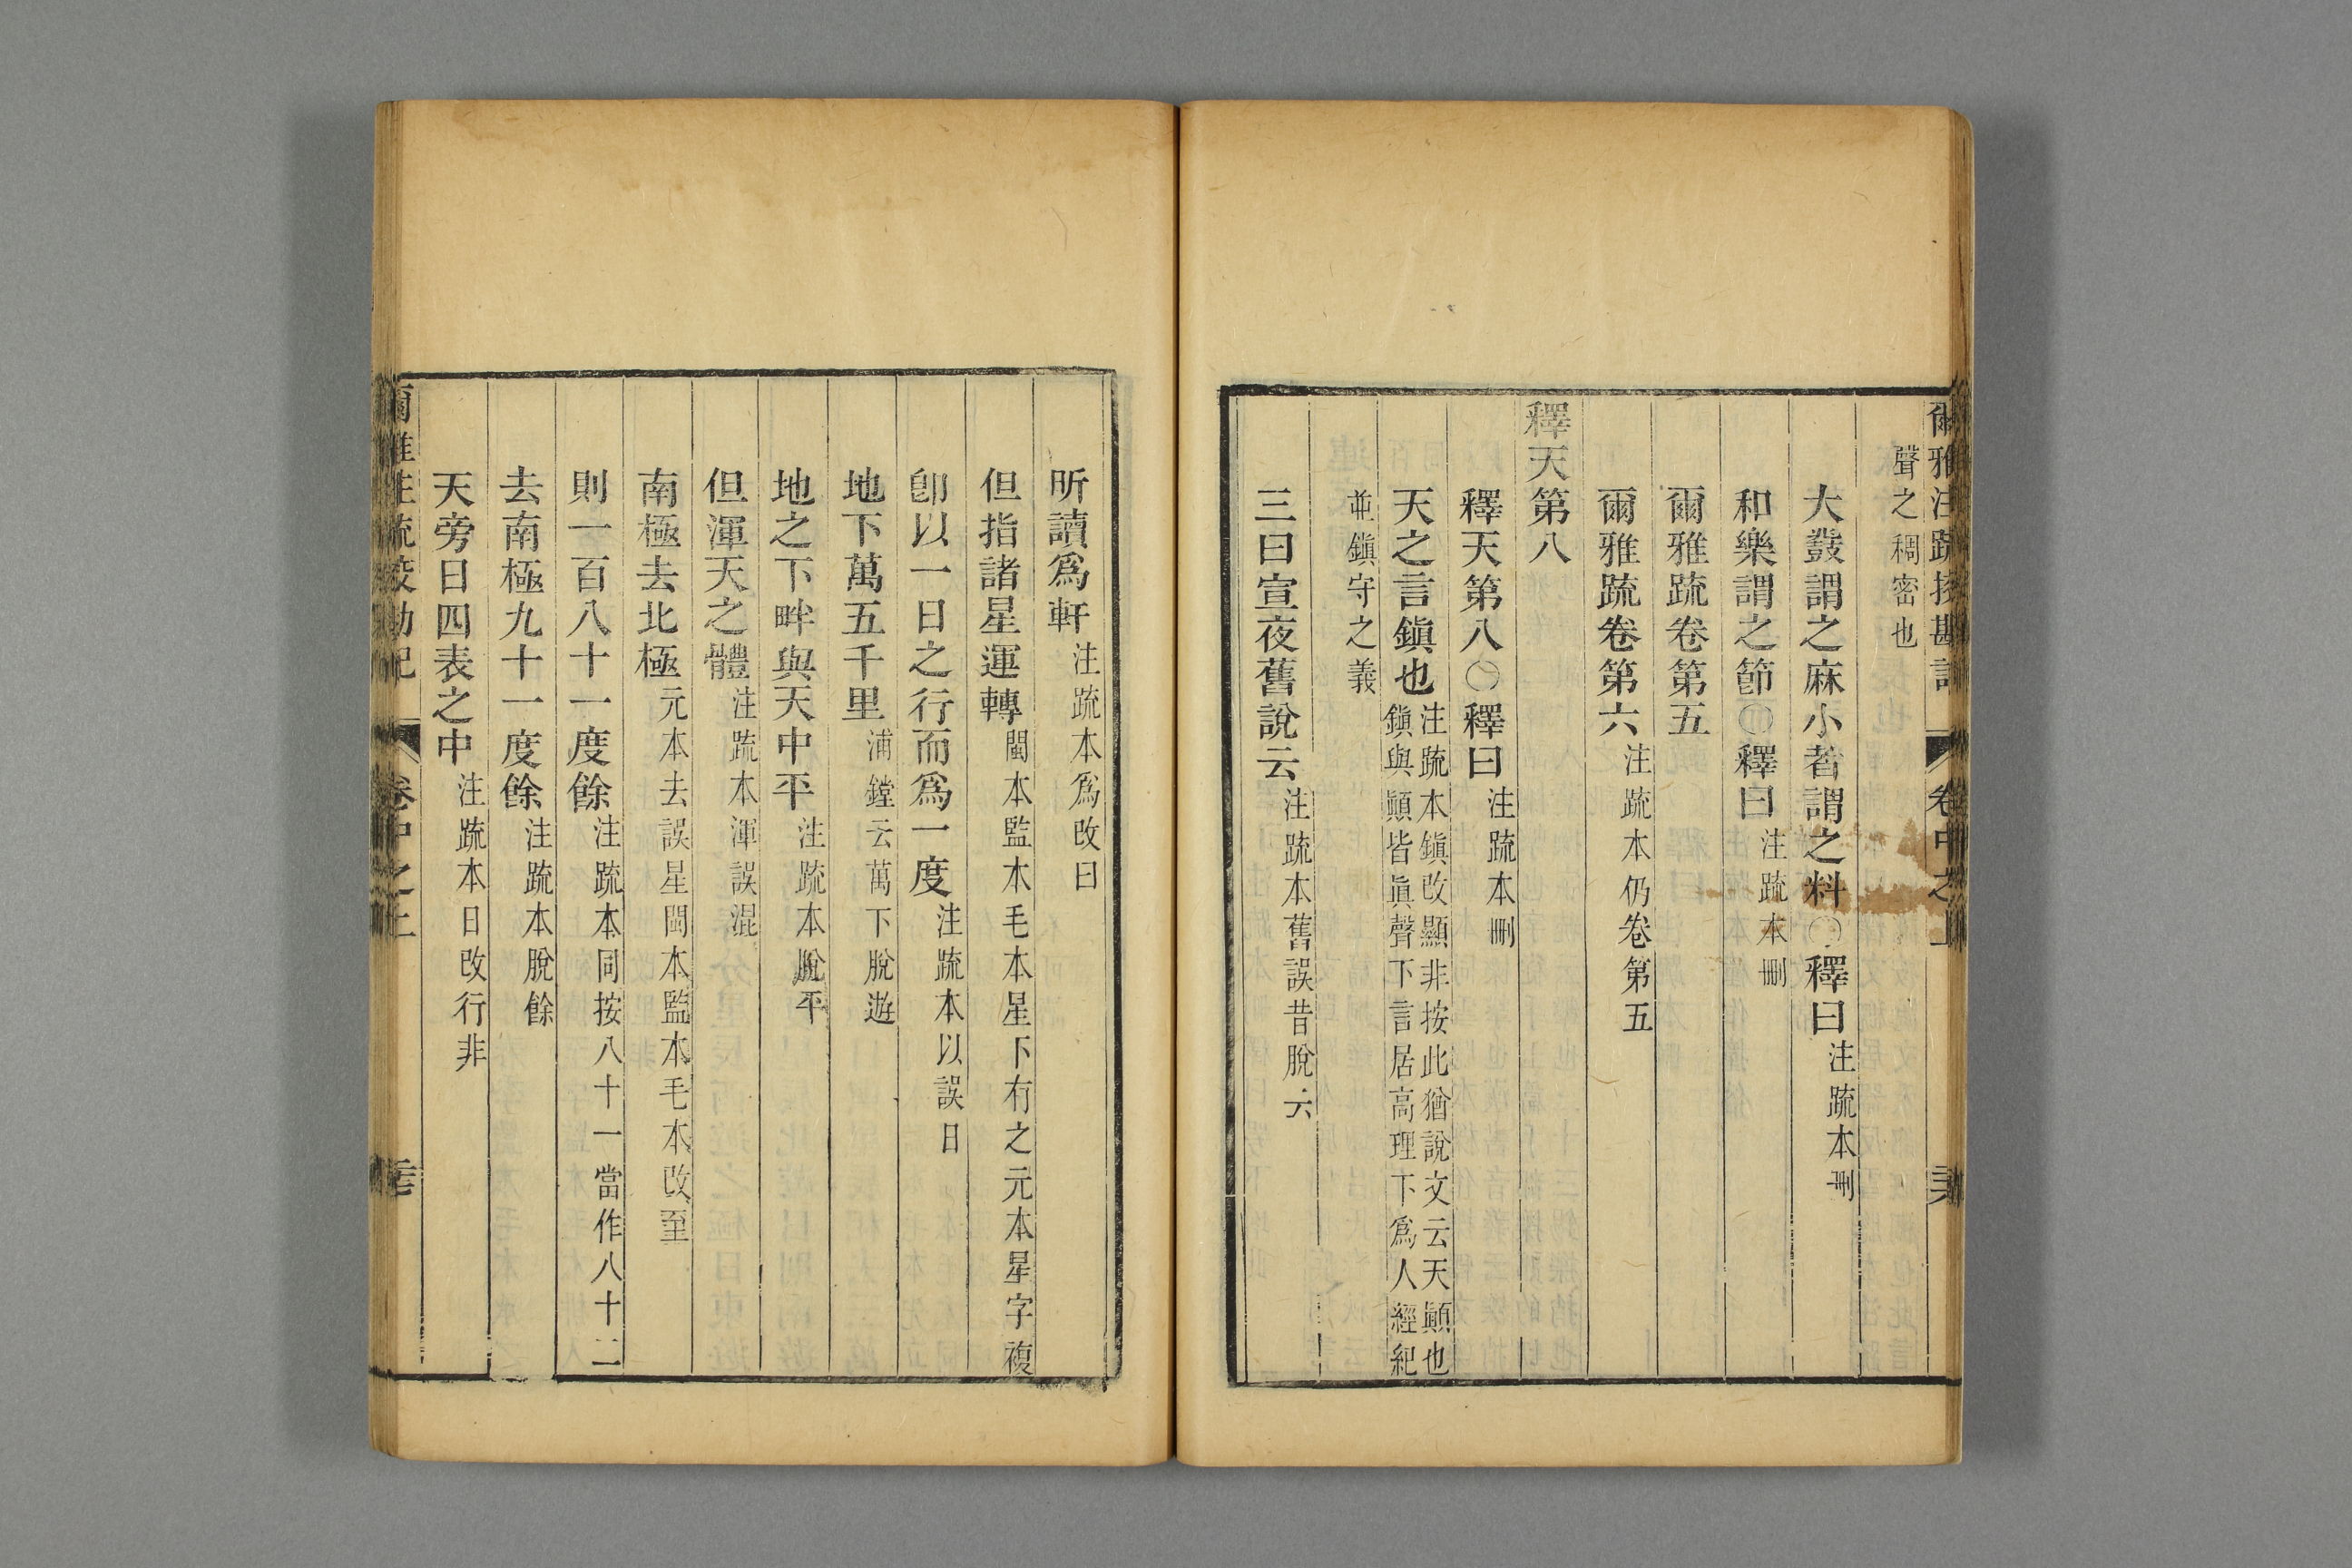 爾雅注疏挍勘記 卷中之上
聲之稠密也
大鼗謂之麻小者謂之料〇釋曰注疏本刪
和樂謂之節〇釋曰注疏本刪
爾雅疏卷第五
爾雅疏卷第六注疏本仍卷第五
釋天第八
釋天第八〇釋曰注疏本刪
天之言鎭也注疏本鎭改顯非按此猶說文云天顚也
鎭與顚皆眞聲下言居高理下爲人經紀
並鎭守之義
三曰宣夜舊說云注疏本舊誤昔脫云
昕讀爲軒注疏本爲改曰
但指諸星運轉閩本監本毛本星下有之元本星字複
卽以一日之行而爲一度注疏本以誤日
地下萬五千里浦鏜云萬下脫遊
地之下畔與天中平注疏本脫平
但渾天之體注疏本渾誤混
南極去北極元本去誤星閩本監本毛本改至
則一百八十一度餘注疏本同按八十一當作八十二
去南極九十一度餘注疏本脫餘
天旁日四表之中注疏本日改行非
爾雅注疏挍勘記 卷中之上